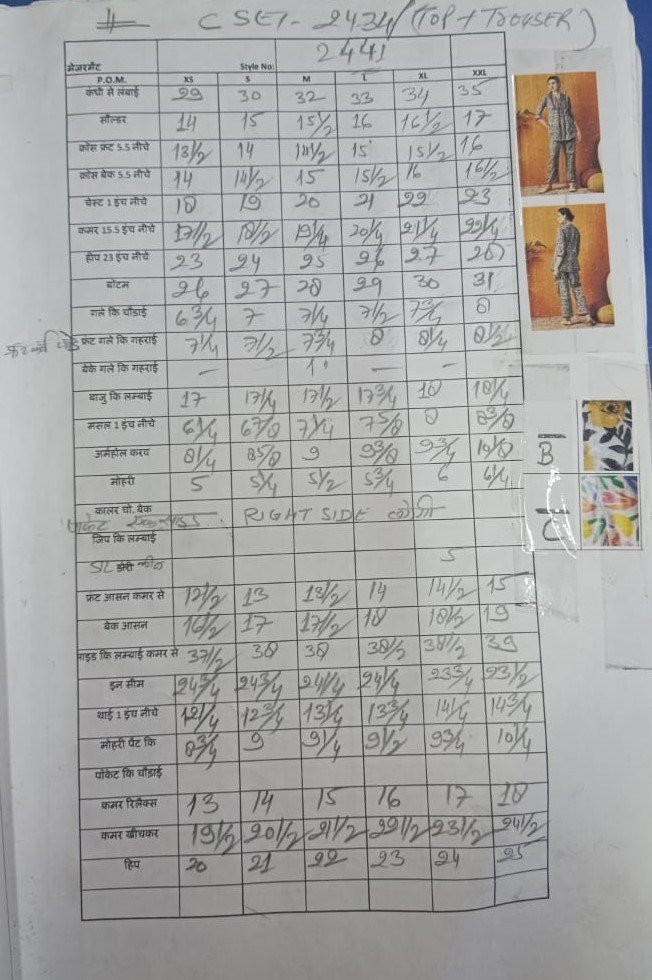 # C SET - 2434 (TOP + TROUSER)
मेजरमेंट Style No: 2441
P.O.M. XS S M L XL XXL
कंधी से लंबाई 29 30 32 33 34 35
सोल्डर 14 15 15 1/2 16 16 1/2 17
क्रोस फ्रंट 5.5 नीचे 13 1/2 14 14 1/2 15 15 1/2 16
क्रोस बेक 5.5 नीचे 14 14 1/2 15 15 1/2 16 16 1/2
चेस्ट 1 इंच नीचे 18 19 20 21 22 23
कमर 15.5 इंच नीचे 17 1/2 18 1/2 19 1/4 20 1/4 21 1/4 22 1/4
हीप 23 इंच नीचे 23 24 25 26 27 28
बोटम 26 27 28 29 30 31
गले कि चौड़ाई 6 3/4 7 7 1/4 7 1/2 7 3/4 8
फ्रंट गले कि गहराई 7 1/4 7 1/2 7 3/4 8 8 1/4 8 1/2
बेके गले कि गहराई — — —
बाजु कि लम्बाई 17 17 1/4 17 1/2 17 3/4 18 18 1/4
मसल 1 इंच नीचे 6 1/4 6 7/8 7 1/4 7 5/8 8 8 3/8
आर्महोल करव 8 1/4 8 5/8 9 9 3/8 9 3/4 10 1/8
मोहरी 5 5 1/4 5 1/2 5 3/4 6 6 1/4
कालर चो. बेक
पाकेट RIGHT SIDE लगेगी
जिप कि लम्बाई
डोरी 5
फ्रंट आसन कमर से 12 1/2 13 13 1/2 14 14 1/2 15
बेक आसन 16 1/2 17 17 1/2 18 18 1/2 19
साइड कि लम्बाई कमर से 37 1/2 38 38 38 1/2 38 1/2 39
इन सीम 24 3/4 24 3/4 24 1/4 24 1/4 23 3/4 23 1/2
थाई 1 इंच नीचे 12 1/4 12 3/4 13 1/4 13 3/4 14 1/4 14 3/4
मोहरी पेंट कि 8 3/4 9 9 1/4 9 1/2 9 3/4 10 1/4
पॉकेट कि चौड़ाई
कमर रिलेक्स 13 14 15 16 17 18
कमर खीचकर 19 1/2 20 1/2 21 1/2 22 1/2 23 1/2 24 1/2
हिप 20 21 22 23 24 25
B
C